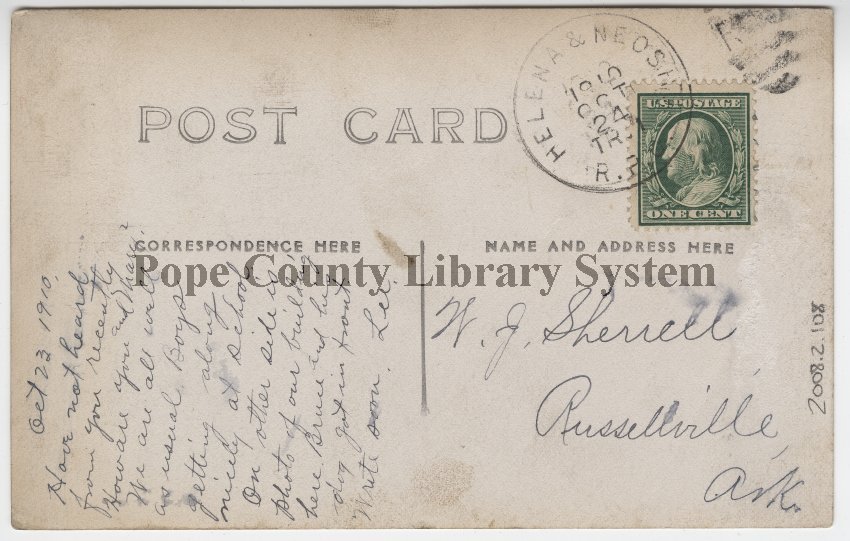 POST CARD
HELENA & NEOSHO
OCT
24
1910
TR
R.P.
U.S. POSTAGE
ONE CENT
CORRESPONDENCE HERE
NAME AND ADDRESS HERE
Pope County Library System
Oct 23 1910.
Have not heard
from you recently
How are you and
We are all well
as usual Boys
getting along
nicely at school
On other side is
photo of our building
here Bruce and his
dog got in front
Write soon. Lee.
W. J. Sherrell
Russellville,
Ark.
2008.2.108